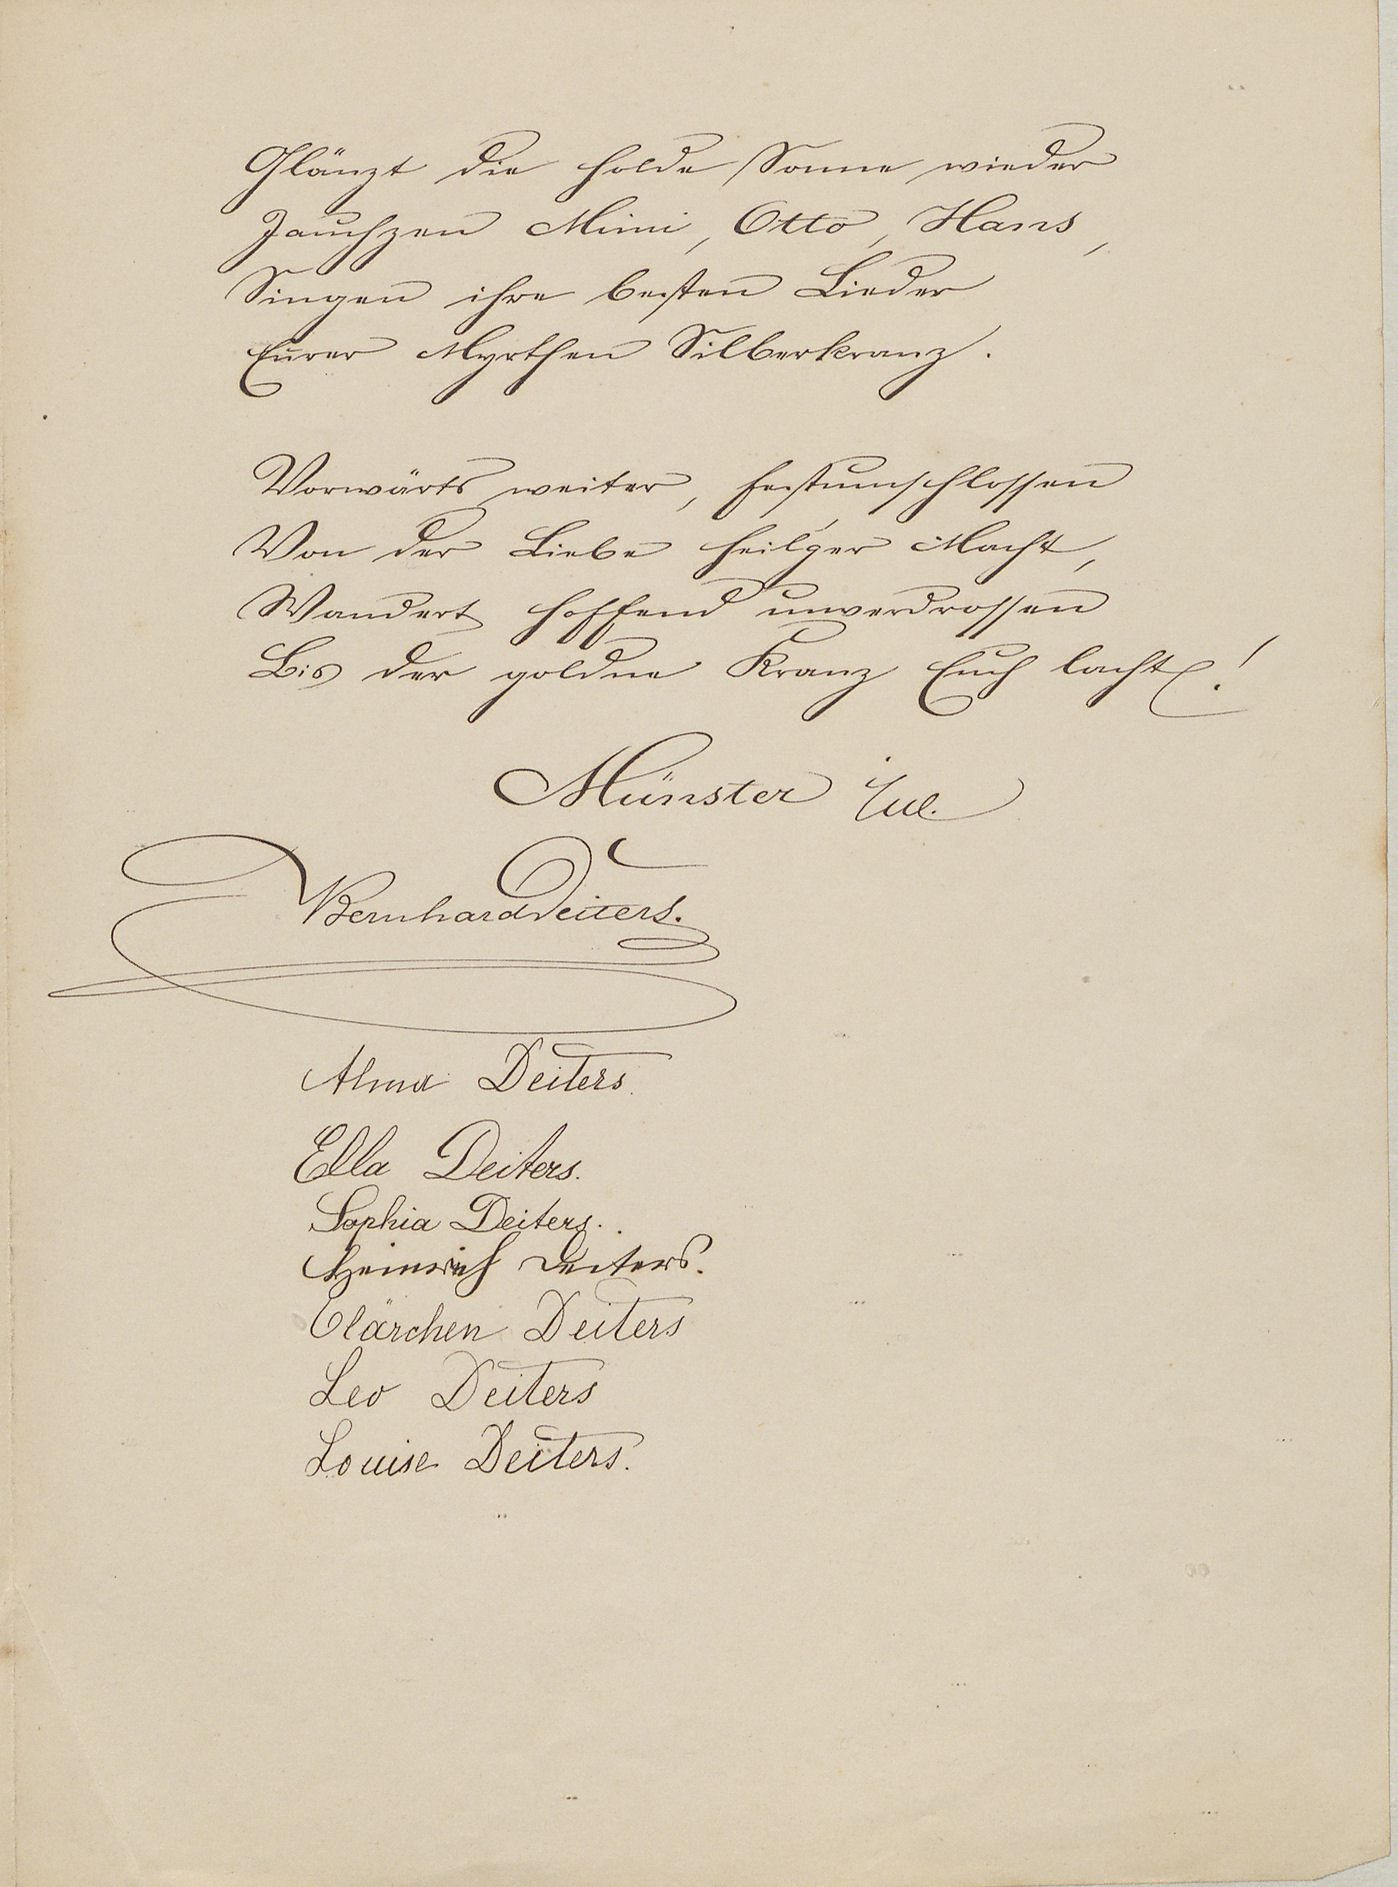 Glänzt die holde Sonne wieder
Jauchzen Mimi, Otto, Hans,
Singen ihre besten Lieder
Eurer Myrthen Silberkranz.
Vorwärts weiter, festumschlossen
Von der Liebe heil'ger Macht,
Wandert hoffend unverdrossen
Bis der goldne Kranz Euch lacht!
Münster i/W.
Bernhard Deiters.
Alma Deiters.
Ella Deiters.
Sophia Deiters.
Heinrich Deiters.
Clärchen Deiters
Leo Deiters
Louise Deiters.